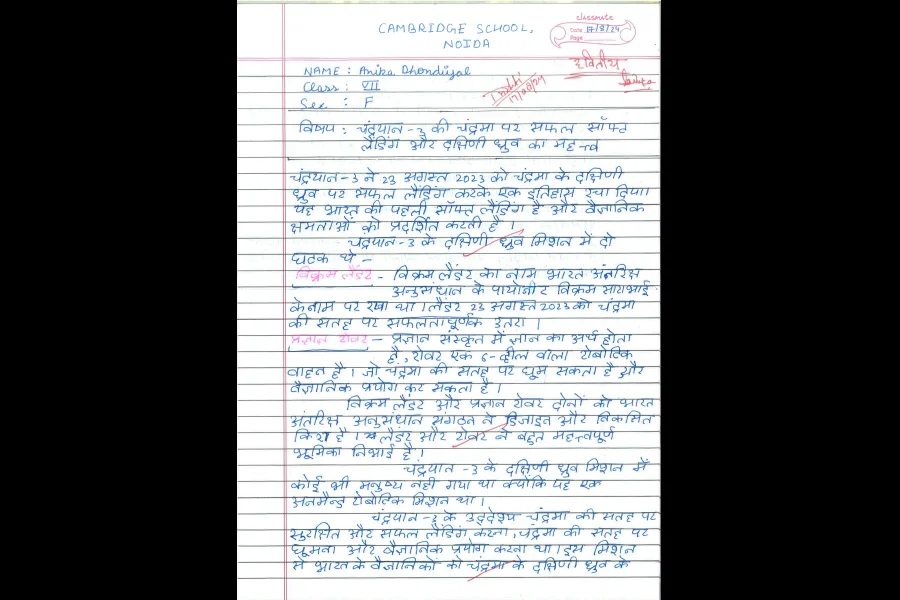 classmate
CAMBRIDGE SCHOOL,
Date 17/8/24
Page
NOIDA
द्वितीय
NAME : Anika Dhondiyal
Class : VII
17/08/24
Sec. : F
विषय : चंद्रयान-3 की चंद्रमा पर सफल सॉफ्ट
लैंडिंग और दक्षिणी ध्रुव का महत्त्व
चंद्रयान-3 ने 23 अगस्त 2023 को चंद्रमा के दक्षिणी
ध्रुव पर सफल लैंडिंग करके एक इतिहास रचा दिया।
यह भारत की पहली सॉफ्ट लैंडिंग है और वैज्ञानिक
क्षमताओं को प्रदर्शित करती है ।
चंद्रयान-3 के दक्षिणी ध्रुव मिशन में दो
घटक थे -
विक्रम लैंडर - विक्रम लैंडर का नाम भारत अंतरिक्ष
अनुसंधान के पायोनीर विक्रम साराभाई
के नाम पर रखा था । लैंडर 23 अगस्त 2023 को चंद्रमा
की सतह पर सफलतापूर्णक उतरा ।
प्रज्ञान रोवर - प्रज्ञान संस्कृत में ज्ञान का अर्थ होता
है, रोवर एक 6-व्हील वाला रोबोटिक
वाहन है । जो चंद्रमा की सतह पर घूम सकता है और
वैज्ञानिक प्रयोग कर सकता है ।
विक्रम लैंडर और प्रज्ञान रोवर दोनों को भारत
अंतरिक्ष अनुसंधान संगठन ने डिजाइन और विकसित
किया है । लैंडर और रोवर ने बहुत महत्त्वपूर्ण
भूमिका निभाई है ।
चंद्रयान -3 के दक्षिणी ध्रुव मिशन में
कोई भी मनुष्य नहीं गया था क्योंकि यह एक
अनमैन्ड रोबोटिक मिशन था ।
चंद्रयान -3 के उद्देश्य चंद्रमा की सतह पर
सुरक्षित और सफल लैंडिंग करना, चंद्रमा की सतह पर
घूमना और वैज्ञानिक प्रयोग करना था। इस मिशन
से भारत के वैज्ञानिकों को चंद्रमा के दक्षिणी ध्रुव के